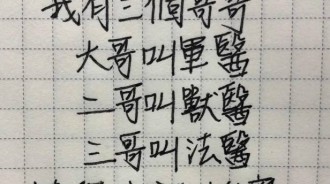 我有三個哥哥
大哥叫軍醫
二哥叫獸醫
三哥叫法醫